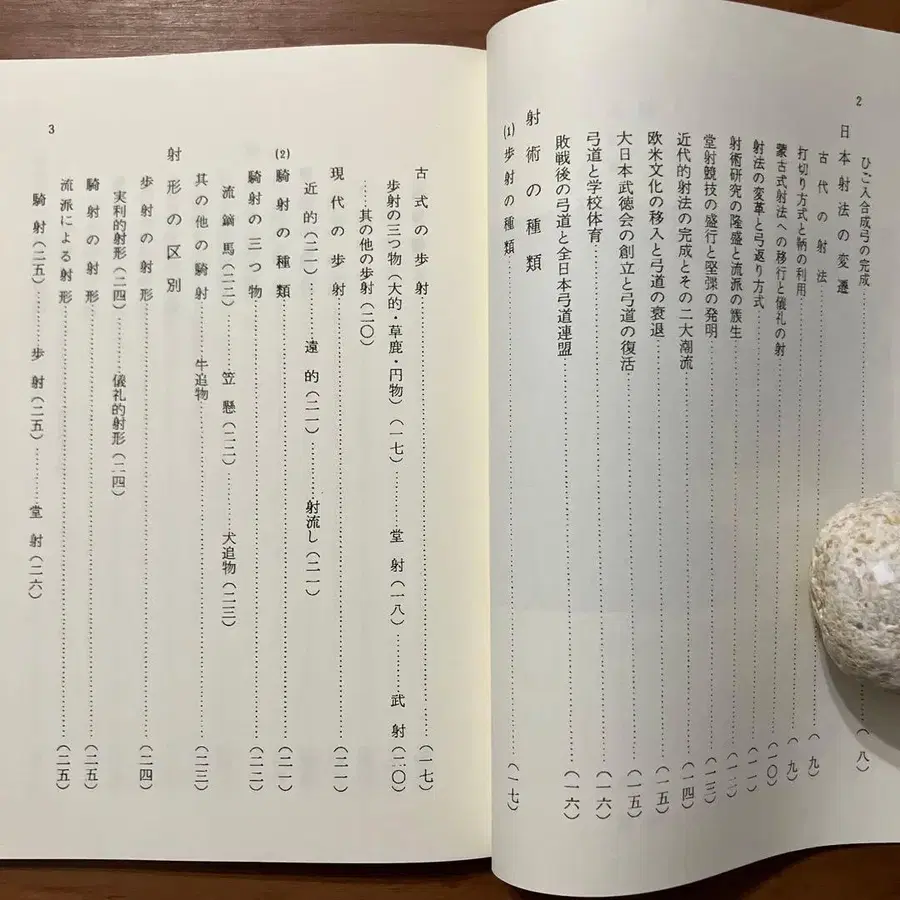 2
ひご入合成弓の完成……(八)
日本射法の変遷
古代の射法……(九)
打切り方式と鞆の利用……(九)
蒙古式射法への移行と儀礼の射……(一〇)
射法の変革と弓返り方式……(一一)
射術研究の隆盛と流派の簇生……(一二)
堂射競技の盛行と堅弽の発明……(一三)
近代的射法の完成とその二大潮流……(一四)
欧米文化の移入と弓道の衰退……(一五)
大日本武徳会の創立と弓道の復活……(一五)
弓道と学校体育……(一六)
敗戦後の弓道と全日本弓道連盟……(一六)
射術の種類
(1)歩射の種類……(一七)
3
古式の歩射……(一七)
歩射の三つ物(大的・草鹿・円物)(一七)……堂射(一八)……武射(二〇)
……其の他の歩射(二〇)
現代の歩射……(二一)
近的(二一)……遠的(二一)……射流し(二一)
(2)騎射の種類……(二一)
騎射の三つ物……(二二)
流鏑馬(二二)……笠懸(二二)……犬追物(二三)
其の他の騎射……牛追物……(二三)
射形の区別
歩射の射形……(二四)
実利的射形(二四)……儀礼的射形(二四)
騎射の射形……(二五)
流派による射形……(二五)
騎射(二五)……歩射(二五)……堂射(二六)